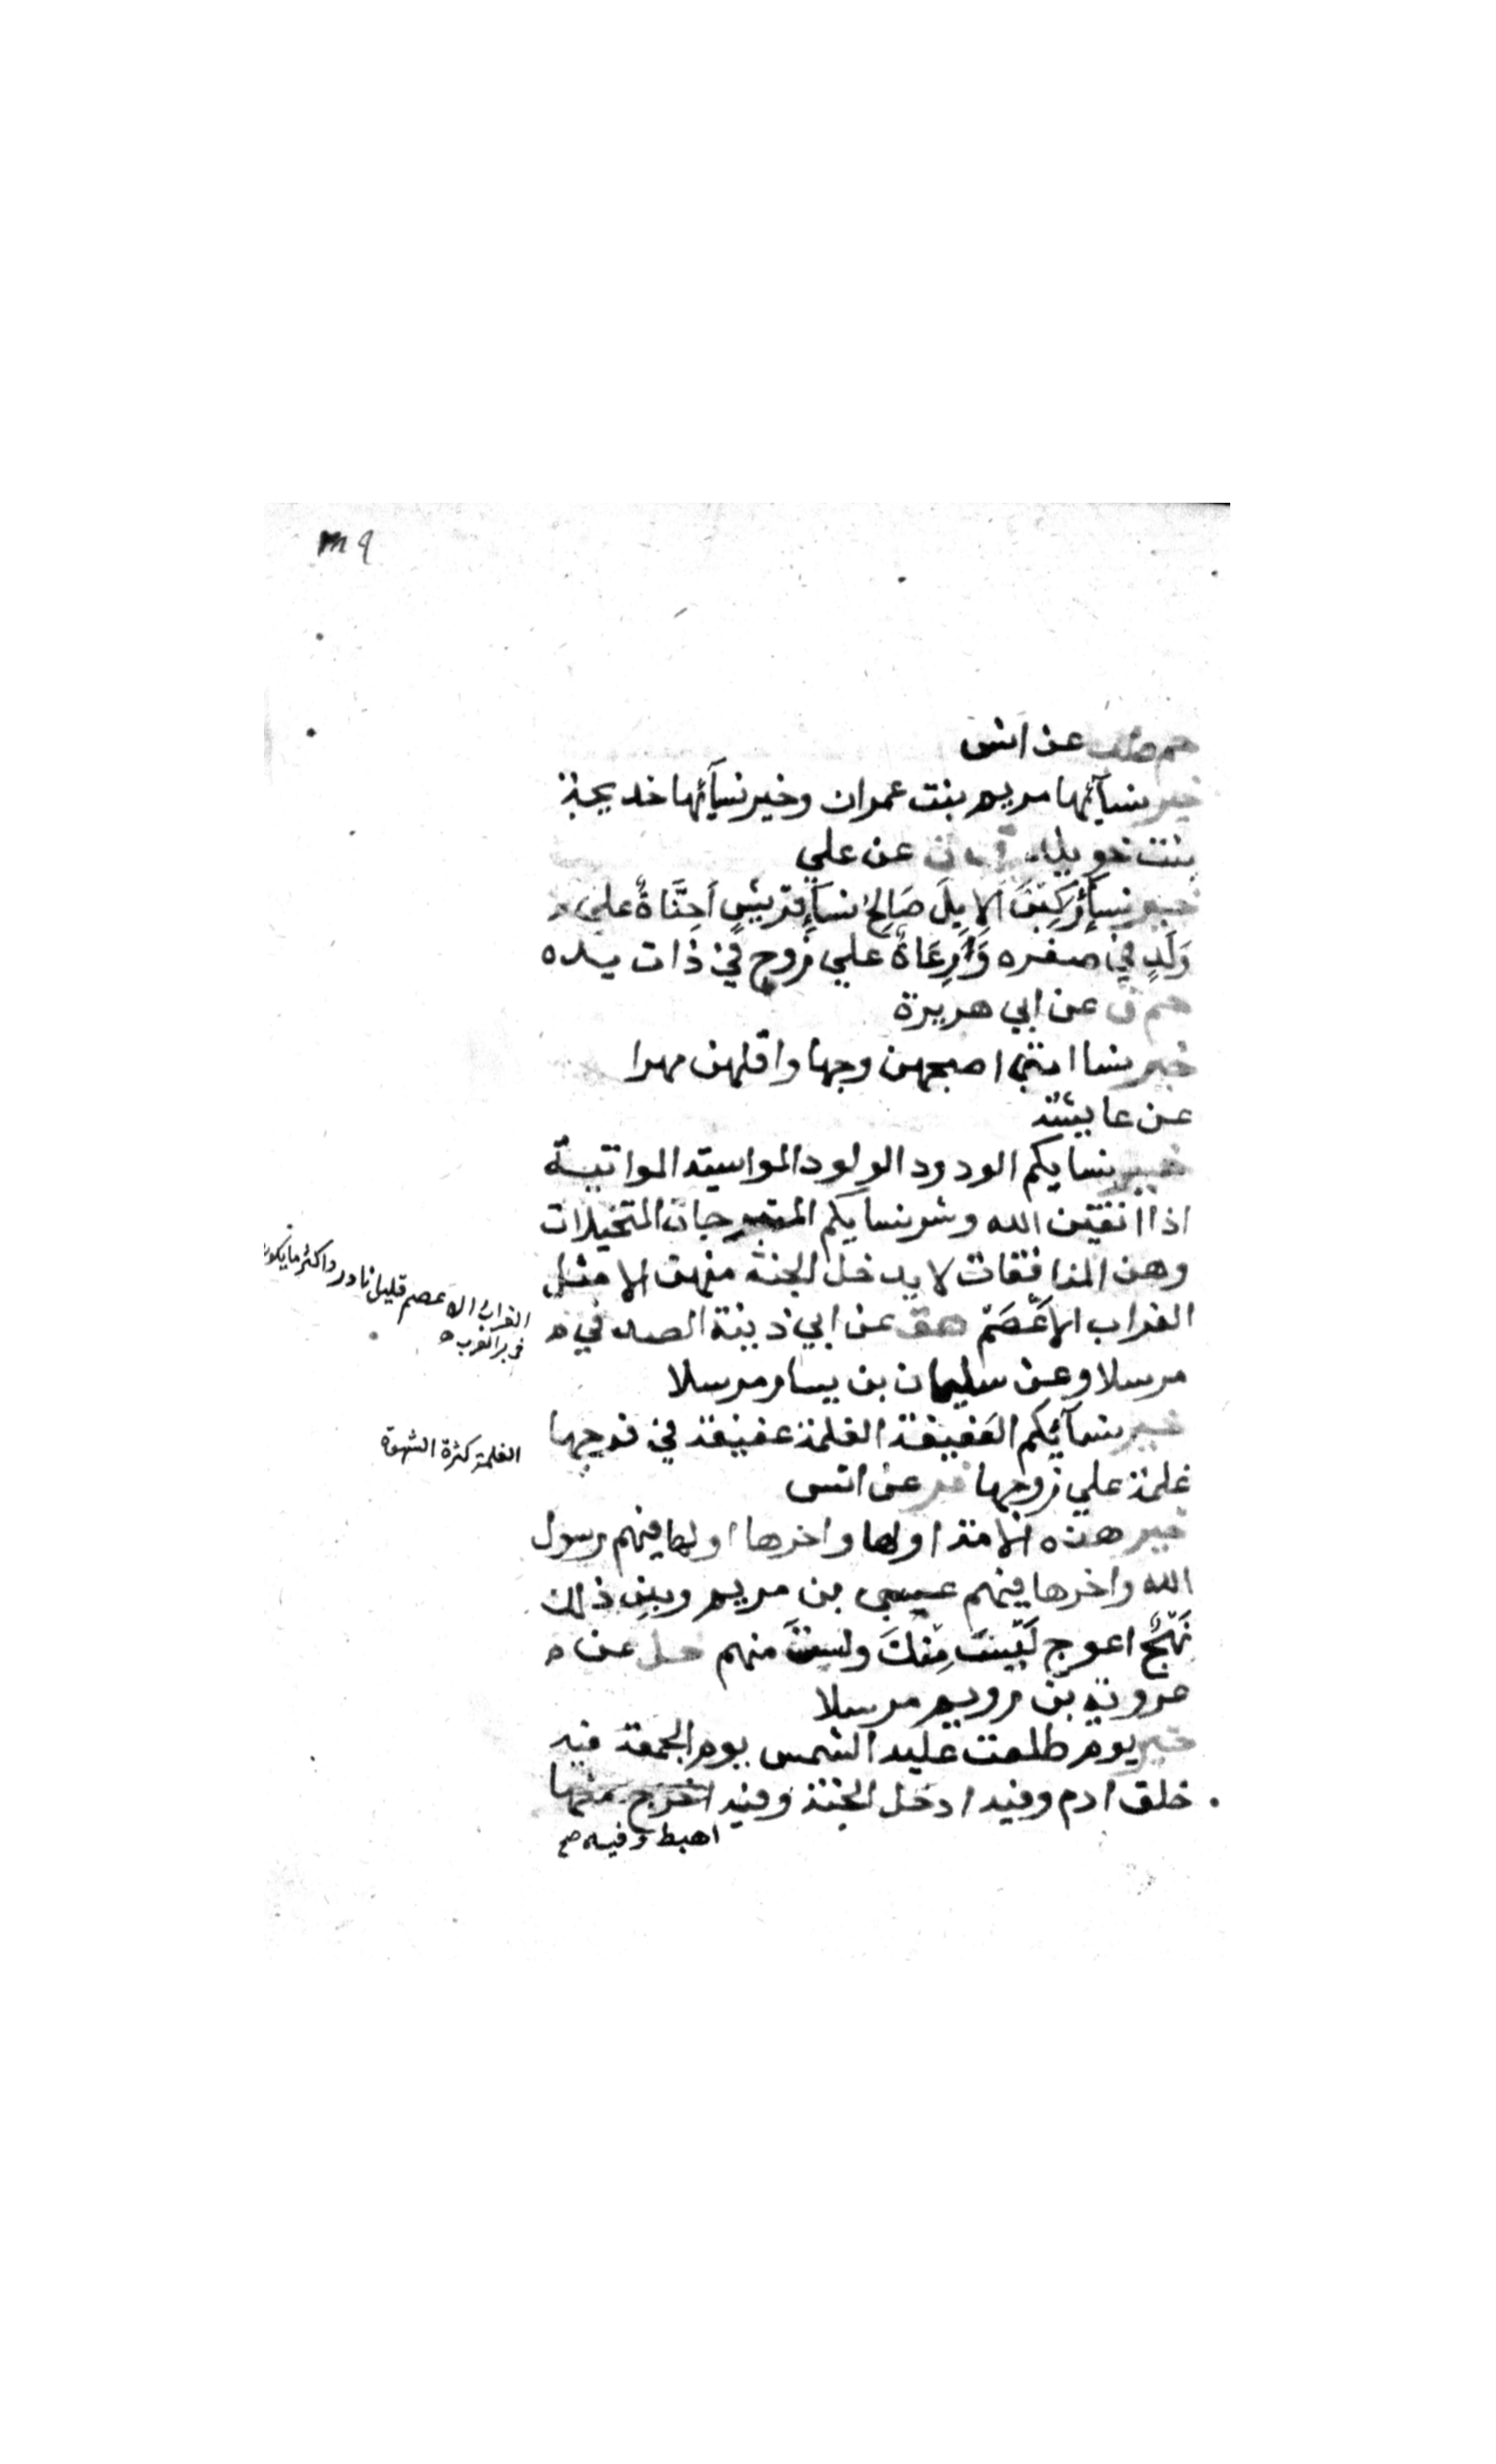 ٣١٩
حم طب عن انس
خير نسآئها مريم بنت عمران وخير نسآئها خديجة
بنت خويلد ق ت عن علي
خير نسآءٍ رَكِبْنَ الاِبِلَ صَالِحُ نسآءِ قريشٍ اَحْنَاهُ علي
وَلَدٍ في صغره وَاَرعَاهُ علي زوج في ذات يده
حم ق عن ابي هريرة
خير نسا امتي اصبحهن وجها واقلهن مهرا
عن عايشة
خير نسايكم الودود الولود المواسية المواتية
اذا اتقين الله وشر نسايكم المتبرجات المتخيلات
وهن المنافقات لا يدخل الجنة منهن الا مثل
الغراب الاَعْصَمْ هق عن ابي اذينة الصدفي
مرسلا وعن سليمان بن يسار مرسلا
خير نسآئكم العفيفة الغلمة عفيفة في فرجها
غلمة علي زوجها فر عن انس
خير هذه الامة اولها واخرها اولها فيهم رسول
الله واخرها فيهم عيسي بن مريم وبين ذلك
نَهْجٌ اعوج لَيْسَ مِنْكَ ولستَ منهم حل عن
عروة بن رويم مرسلا
خير يوم طلعت عليه الشمس يوم الجمعة فيه
خلق ادم وفيه ادخل الجنة وفيه اخرج منها
اهبط وفيه صح
الغراب الاعصم قليل نادر واكثر ما يكون
الغلمة كثرة الشهوة